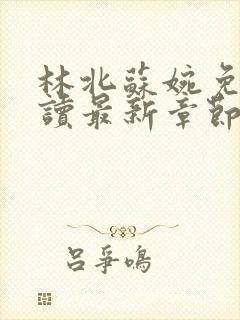 林北蘇婉免
讀最新章節
呂爭鳴